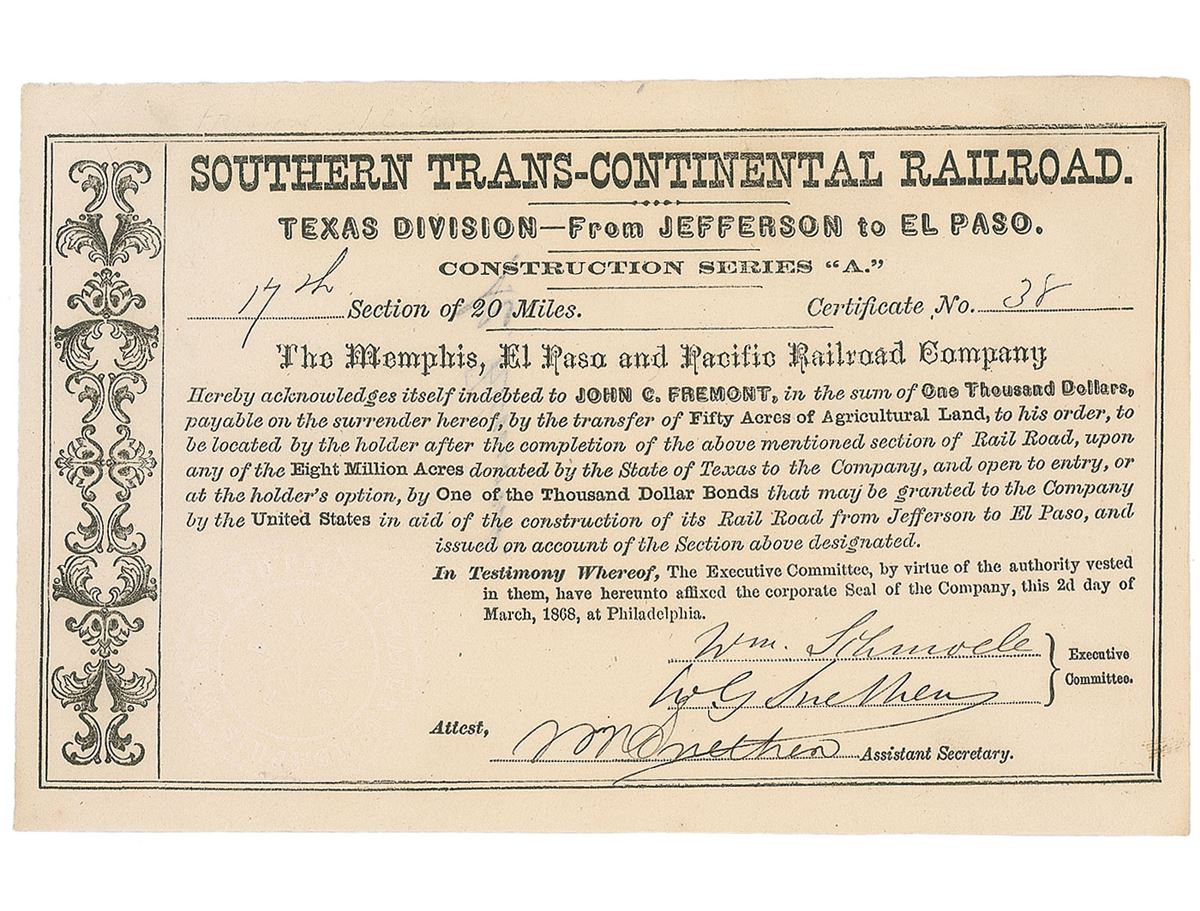 SOUTHERN TRANS-CONTINENTAL RAILROAD.
TEXAS DIVISION—From JEFFERSON to EL PASO.
CONSTRUCTION SERIES "A."
17th Section of 20 Miles. Certificate No. 38
The Memphis, El Paso and Pacific Railroad Company
Hereby acknowledges itself indebted to JOHN C. FREMONT, in the sum of One Thousand Dollars,
payable on the surrender hereof, by the transfer of Fifty Acres of Agricultural Land, to his order, to
be located by the holder after the completion of the above mentioned section of Rail Road, upon
any of the Eight Million Acres donated by the State of Texas to the Company, and open to entry, or
at the holder's option, by One of the Thousand Dollar Bonds that may be granted to the Company
by the United States in aid of the construction of its Rail Road from Jefferson to El Paso, and
issued on account of the Section above designated.
In Testimony Whereof, The Executive Committee, by virtue of the authority vested
in them, have hereunto affixed the corporate Seal of the Company, this 2d day of
March, 1868, at Philadelphia.
Wm. Schmoele
Executive
Committee.
Snethen
Attest,
Snethen Assistant Secretary.